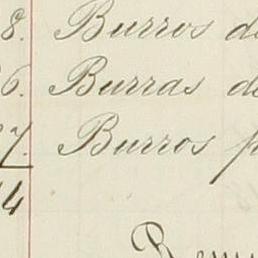 8. Burros de
6. Burras de
7. Burros p
4